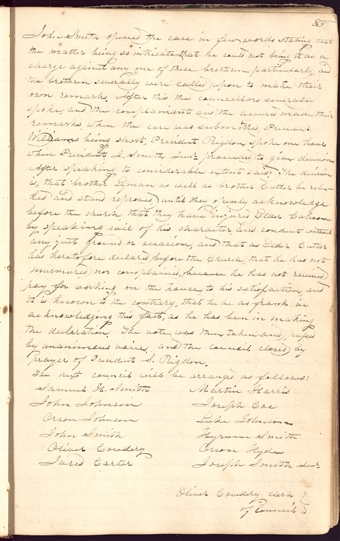 85
John Smith opened the case in few words stating that
the matter being so intricate that he could not bring it as a
charge against any one of these brethren particularly, and
the brethren severally were called upon to make their
own remarks. After this the councellors severally
spoke, and the complainant and the accused made their
remarks when the case was submitted, President
Williams being short. President Rigdon spoke one hour
when President J. Smith Senr proceeded to give decision
After speaking to considerable extent said: The decision
is, that brother Lyman as well as brother Cutler be rebu-
ked and stand reproved, until they openly acknowledge
before the church that they have injured Elder Cahoon
by speaking evil of his character and conduct without
any just ground or occasion, and that as Elder Cutler
has heretofore declared before the Church, that he has not
murmured nor complained, because he has not received
pay for working on the house to his satisfaction, and
it is known to the contrary, that he be as frank in
acknowledging this fault, as he has been in making
the declaration. The vote was then taken and passed
by unanimous voice, and the council closed by
prayer of President S. Rigdon.
The next council will be arranged as follows:
Samuel H. Smith Martin Harris
John Johnson Joseph Coe
Orson Johnson Luke Johnson
John Smith Hyrum Smith
Oliver Cowdery Orson Hyde
Jared Carter Joseph Smith Senr
Oliver Cowdery clerk
of Council